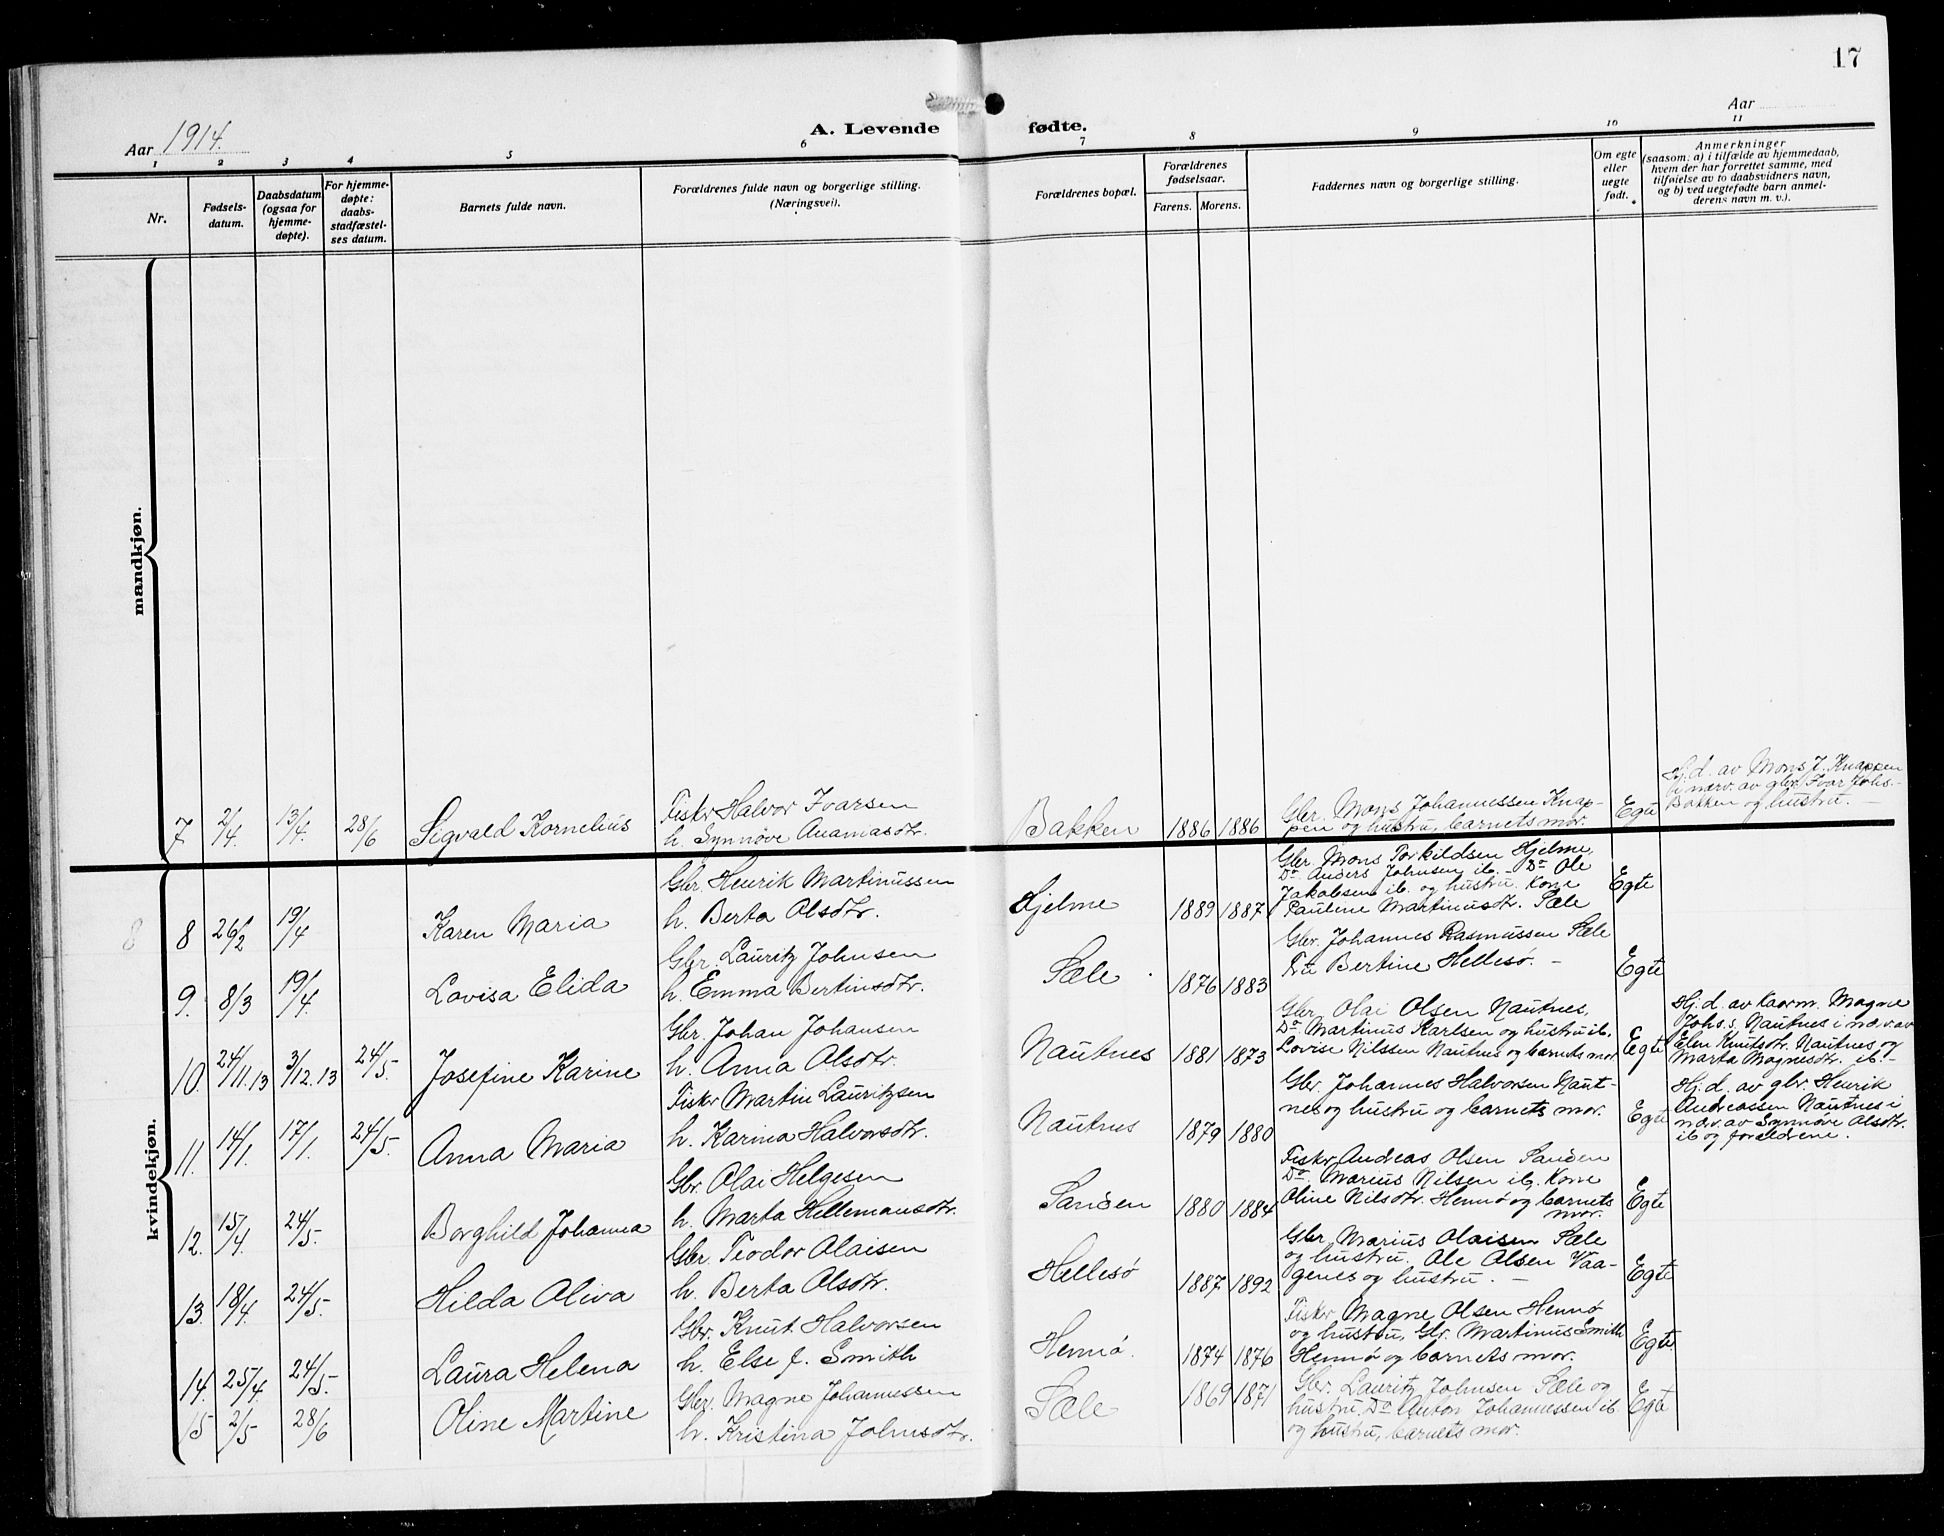 17
Aar 1914.
A. Levende fødte.
Aar
1 2 3 4 5 6 7 8 9 10 11
Nr.
Fødsels-
datum.
Daabsdatum
(ogsaa for
hjemme-
døpte).
For hjemme-
døpte:
daabs-
stadfæstel-
ses datum.
Barnets fulde navn.
Forældrenes fulde navn og borgerlige stilling.
(Næringsvei).
Forældrenes bopæl.
Forældrenes
fødselsaar.
Farens. Morens.
Faddernes navn og borgerlige stilling.
Om egte
eller
uegte
født.
Anmerkninger
(saasom: a) i tilfælde av hjemmedaab,
hvem der har forrettet samme, med
tilføielse av to daabsvidners navn,
og b) ved uegtefødte barn anmel-
derens navn m. v.).
mandkjøn.
7 2/4. 13/4. 28/6 Sigvald Kornelius
Fiskr Halvor Ivarsen
h. Synnøve Ananiasdtr.
Bakken 1886 1886
Gbr. Mons Johannessen Knap-
pen og hustru, barnets mor.
Egte
Hj.d. av Mons J. Knappen
i nærv. av gbr. Ivar Johs.
Bakken og hustru. —
kvindekjøn.
8
8 26/2 19/4 Karen Maria
Gbr. Henrik Martinussen
h. Berta Olsdtr.
Hjelme 1889 1887
Gbr. Mons Torkildsen Hjelme.
Do. Anders Johnsen ib. - Do Ole
Jakobsen ib. og hustru. Kone
Pauline Martinusdtr. Sæle
Egte
9. 8/3 19/4. Lovisa Elida
Gbr. Lauritz Johnsen
h. Emma Bertinsdtr.
Sæle 1876 1883
Gbr. Johannes Rasmussen Sæle
Frk Bertine Hellesø. —
Egte
10. 24/11.13 3/12.13 24/5. Josefine Karine
Gbr. Johan Johansen
h. Anna Olsdtr.
Nautnes 1881 1873
Gbr. Olai Olsen Nautnes,
Do. Martinus Karlsen og hustru ib.
Lovise Nilssen Nautnes og barnets mor
Egte
Hj.d. av Kaarm. Magne
Johs.s. Nautnes i nærv. av
Elen Knutsdtr. Nautnes og
Marta Magnesdtr. ib. -
11. 14/1. 17/1. 24/5. Anna Maria
Fiskr Martin Lauritzsen
h. Karina Halvorsdtr.
Nautnes 1879 1880
Gbr. Johannes Halvorsen Naut-
nes og hustru og barnets mor.
Egte
Hj.d. av gbr. Henrik
Andreassen Nautnes i
nærv. av Synnøve Olsdtr.
ib og foreldrene.
12. 15/4. 24/5. Borghild Johanna
Gbr. Olai Helgesen
h. Marta Hellemansdtr.
Sanden 1880 1884
Fiskr Andreas Olsen Sanden
Do. Marius Nilsen ib. Kone
Oline Nilsdtr. Hennø og barnets
mor.
Egte
13. 18/4. 24/5. Hilda Oliva
Gbr. Teodor Olaisen
h. Berta Olsdtr.
Hellesø 1887 1892
Gbr Marius Olaisen Sæle
og hustru. Ole Olsen Vaa-
genes og hustru. —
Egte
14. 25/4. 24/5. Laura Helena
Gbr. Knut Halvorsen
h. Else J. Smith
Hennø. 1874 1876
Fiskr Magne Olsen Hennø
og hustru, Gbr. Martinus Smith
Hennø og barnets mor.
Egte
15 2/5. 28/6 Oline Martine
Gbr. Magne Johannessen
h. Kristina Johnsdtr.
Sæle 1869 1871
Gbr. Lauritz Johnsen Sæle og
hustru. Do Anton Johannessen ib.
og hustru, barnets mor.
Egte